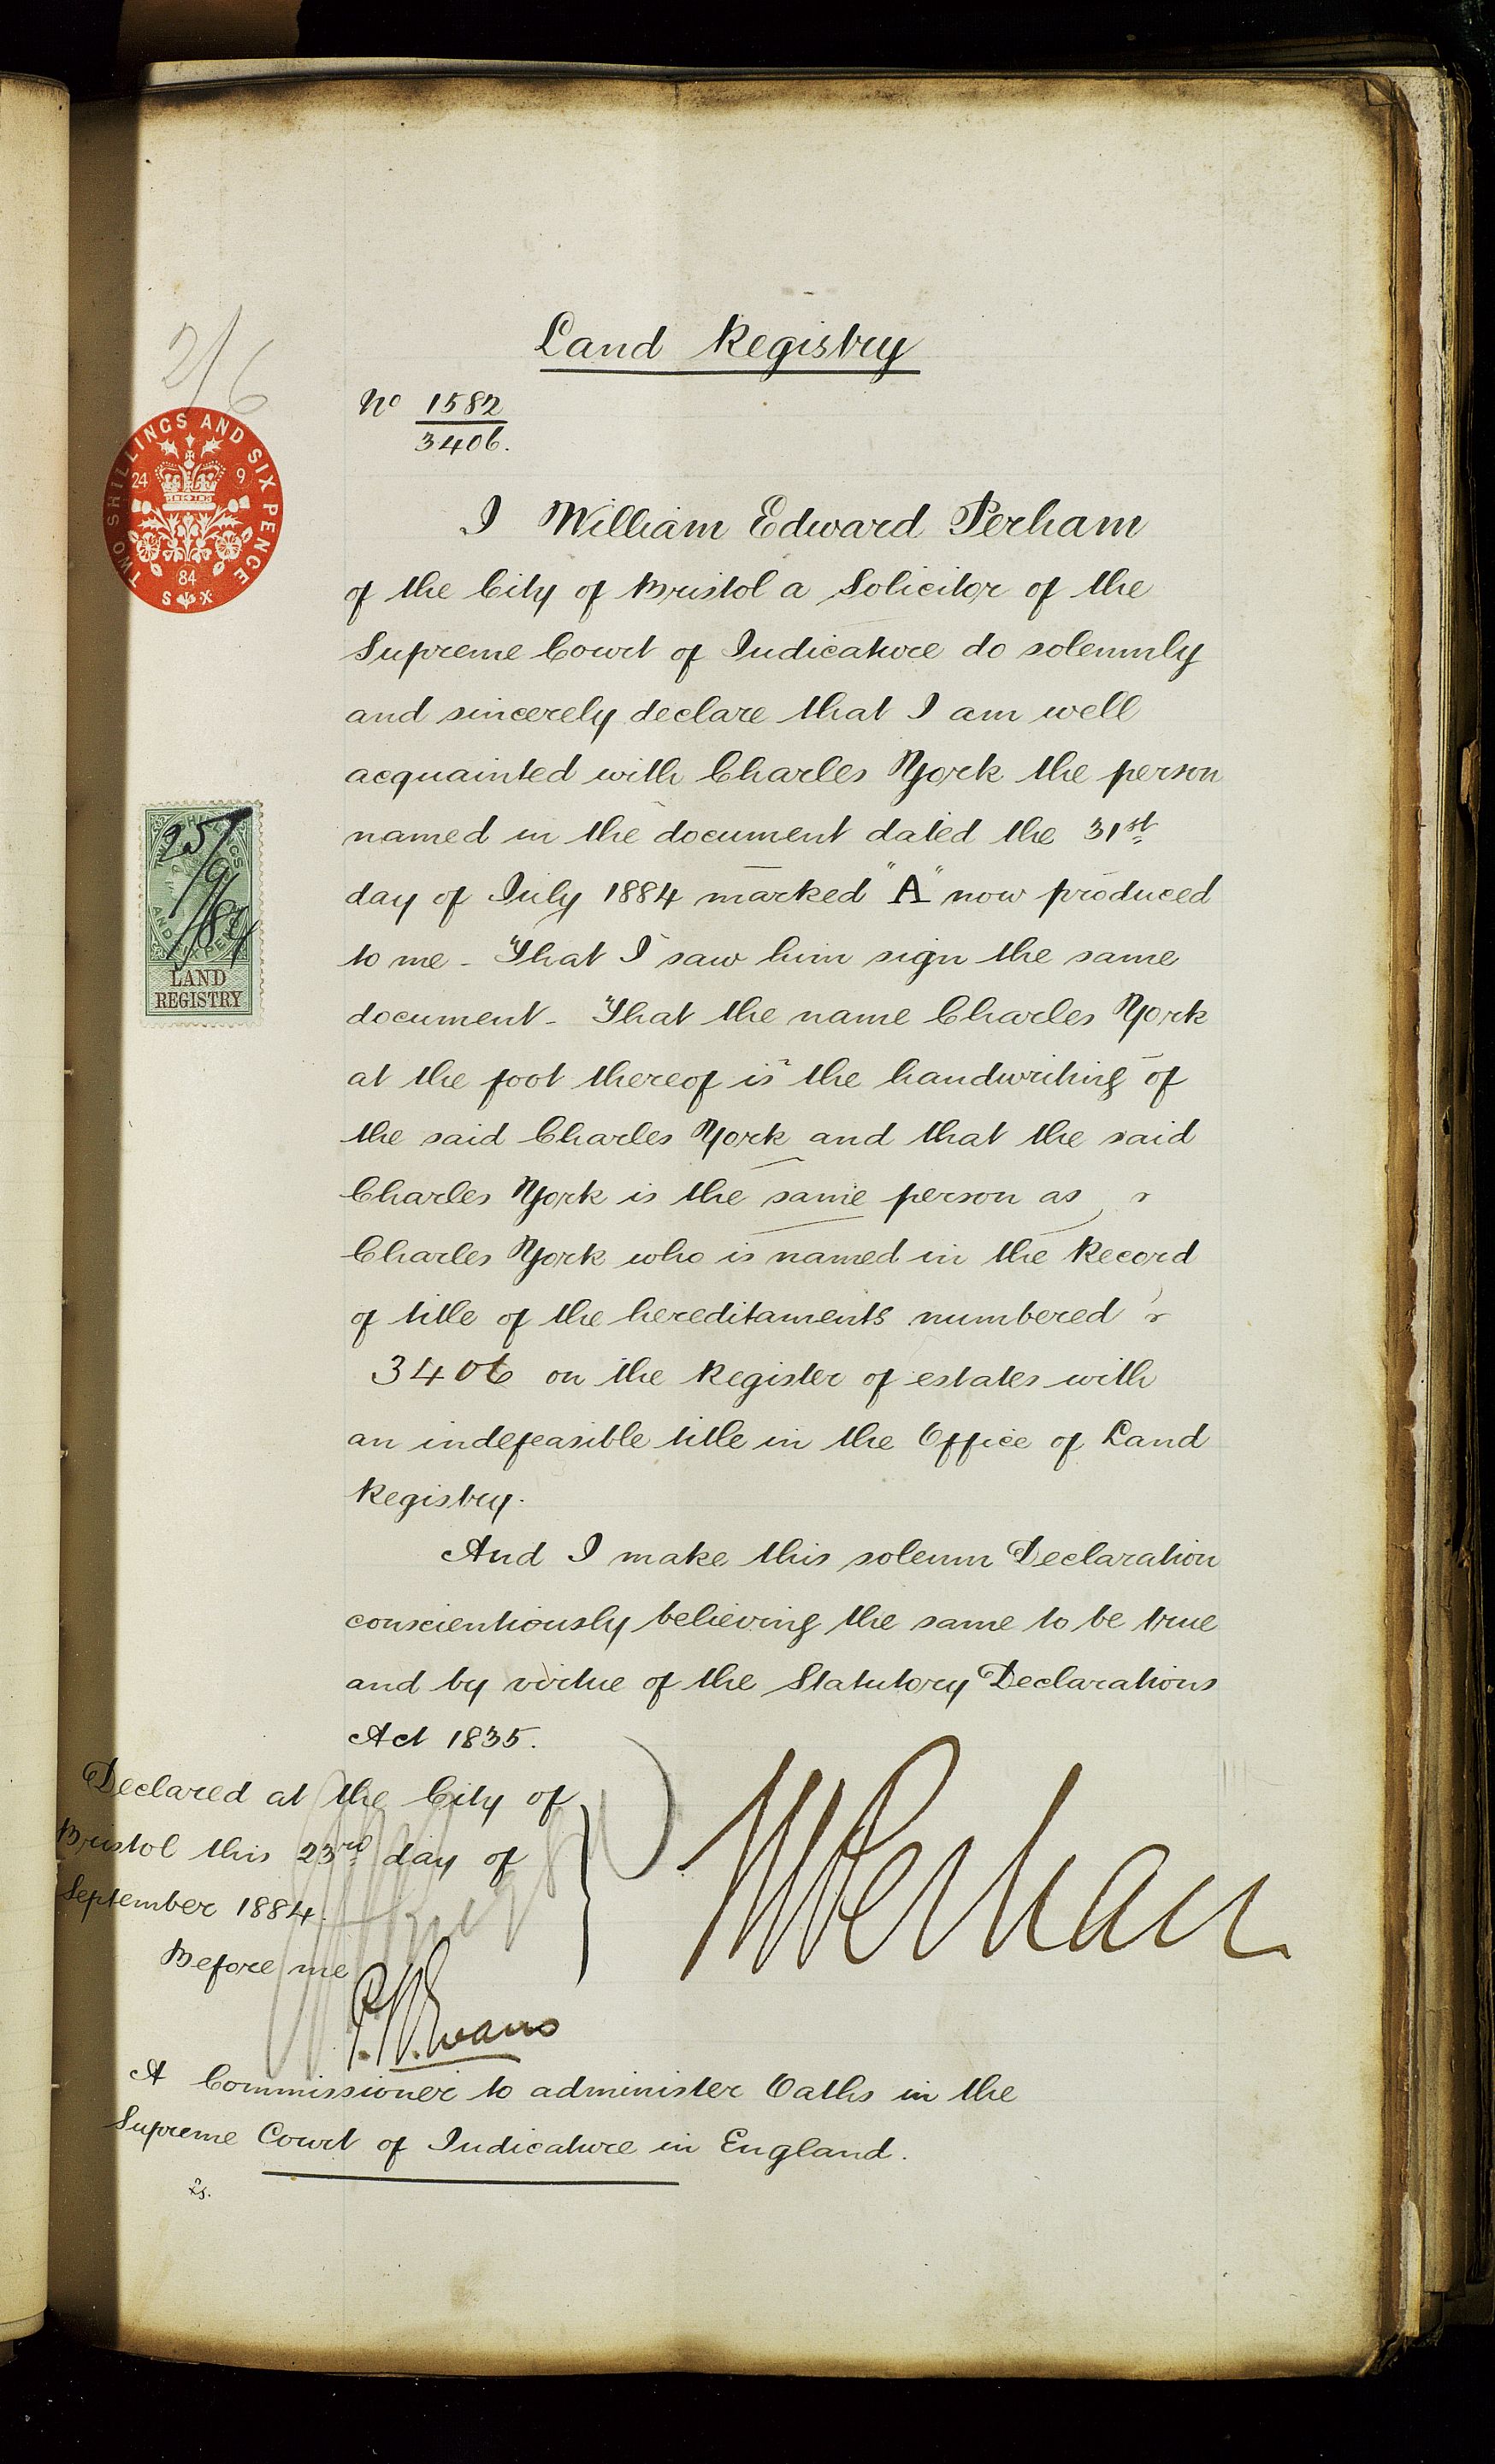 Land Registry
2/6
No 1582
3406.
TWO SHILLINGS AND SIX PENCE
24 9
84
S X
I William Edward Perham
of the City of Bristol a Solicitor of the
Supreme Court of Judicature do solemnly
and sincerely declare that I am well
acquainted with Charles York the person
named in the document dated the 31st
day of July 1884 marked "A" now produced
to me - That I saw him sign the same
document - That the name Charles York
at the foot thereof is the handwriting of
the said Charles York and that the said
Charles York is the same person as
Charles York who is named in the Record
of title of the hereditaments numbered
3406 on the Register of estates with
an indefeasible title in the Office of Land
Registry.
25/9/84
LAND
REGISTRY
And I make this solemn Declaration
conscientiously believing the same to be true
and by virtue of the Statutory Declarations
Act 1835.
Declared at the City of
Bristol this 23rd day of
September 1884.
Before me
WEPerham
P.W.Evans
A Commissioner to administer Oaths in the
Supreme Court of Judicature in England.